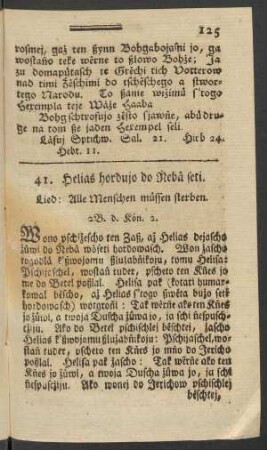 125
vosmej, gaż ten ßynn Bohgabojaſni jo, ga
woſtańo teke wěrne to ßłowo Bohże; Ja
zu domapůtaſch te Grěchi tich Votterow
nad timi Zěſchimi do tſchěſchego a ſtwor-
tego Narodu. To ßame wiżimü ſ'togo
Exempla teje Wáże Haaba
Bohg ſchtrofujo zěſto ſjawńe, abü dru-
ge na tom ße jaden Exempel ſeli.
Láſuj Sprichw. Sal. 21. Hirb 24.
Hebr. 11.
41. Helias hordujo do Nebä ſeti.
Lied: Alle Menſchen müſſen ſterben.
2B. d. Kön. 2.
Wono pſchiżeſcho ten Zaß, až Helias dejaſcho
żüwi do Nebä wöſeti hordowaſch. Won jaſcho
k'ßwojomu ßlużabńikoju, tomu Heliſa:
Pſchijeſchel, woſtań tuder, pſcheto ten Kńes jo
we do Betel poßlal. Heliſa pak (kotari humar-
kowal běſcho, až Helias ſ'togo ßwěta budżo ſet-
hordowaſch) wotgrońi: Tak wěrńe ako ten Kńes
jo żüwi, a twoja Duſcha żüwa jo, ja ſchi ńeſpuſch-
ijju. Ako do Betel pſchiſchlej běſchtej, jaſcho
Helias k'ßwojomu ßlużabńikoju: Pſchijaſchel, wo-
ſtań tuder, pſcheto ten Kńes jo mńo do Jericho
poßlal. Heliſa pak jaſcho: Tak wěrńe ako ten
Kńes jo żüwi, a twoja Duſcha żüwa jo, ja ſchi
ńeſpaſchijju. Ako wonej do Jerichow pſchiſchlej
běſchtej,